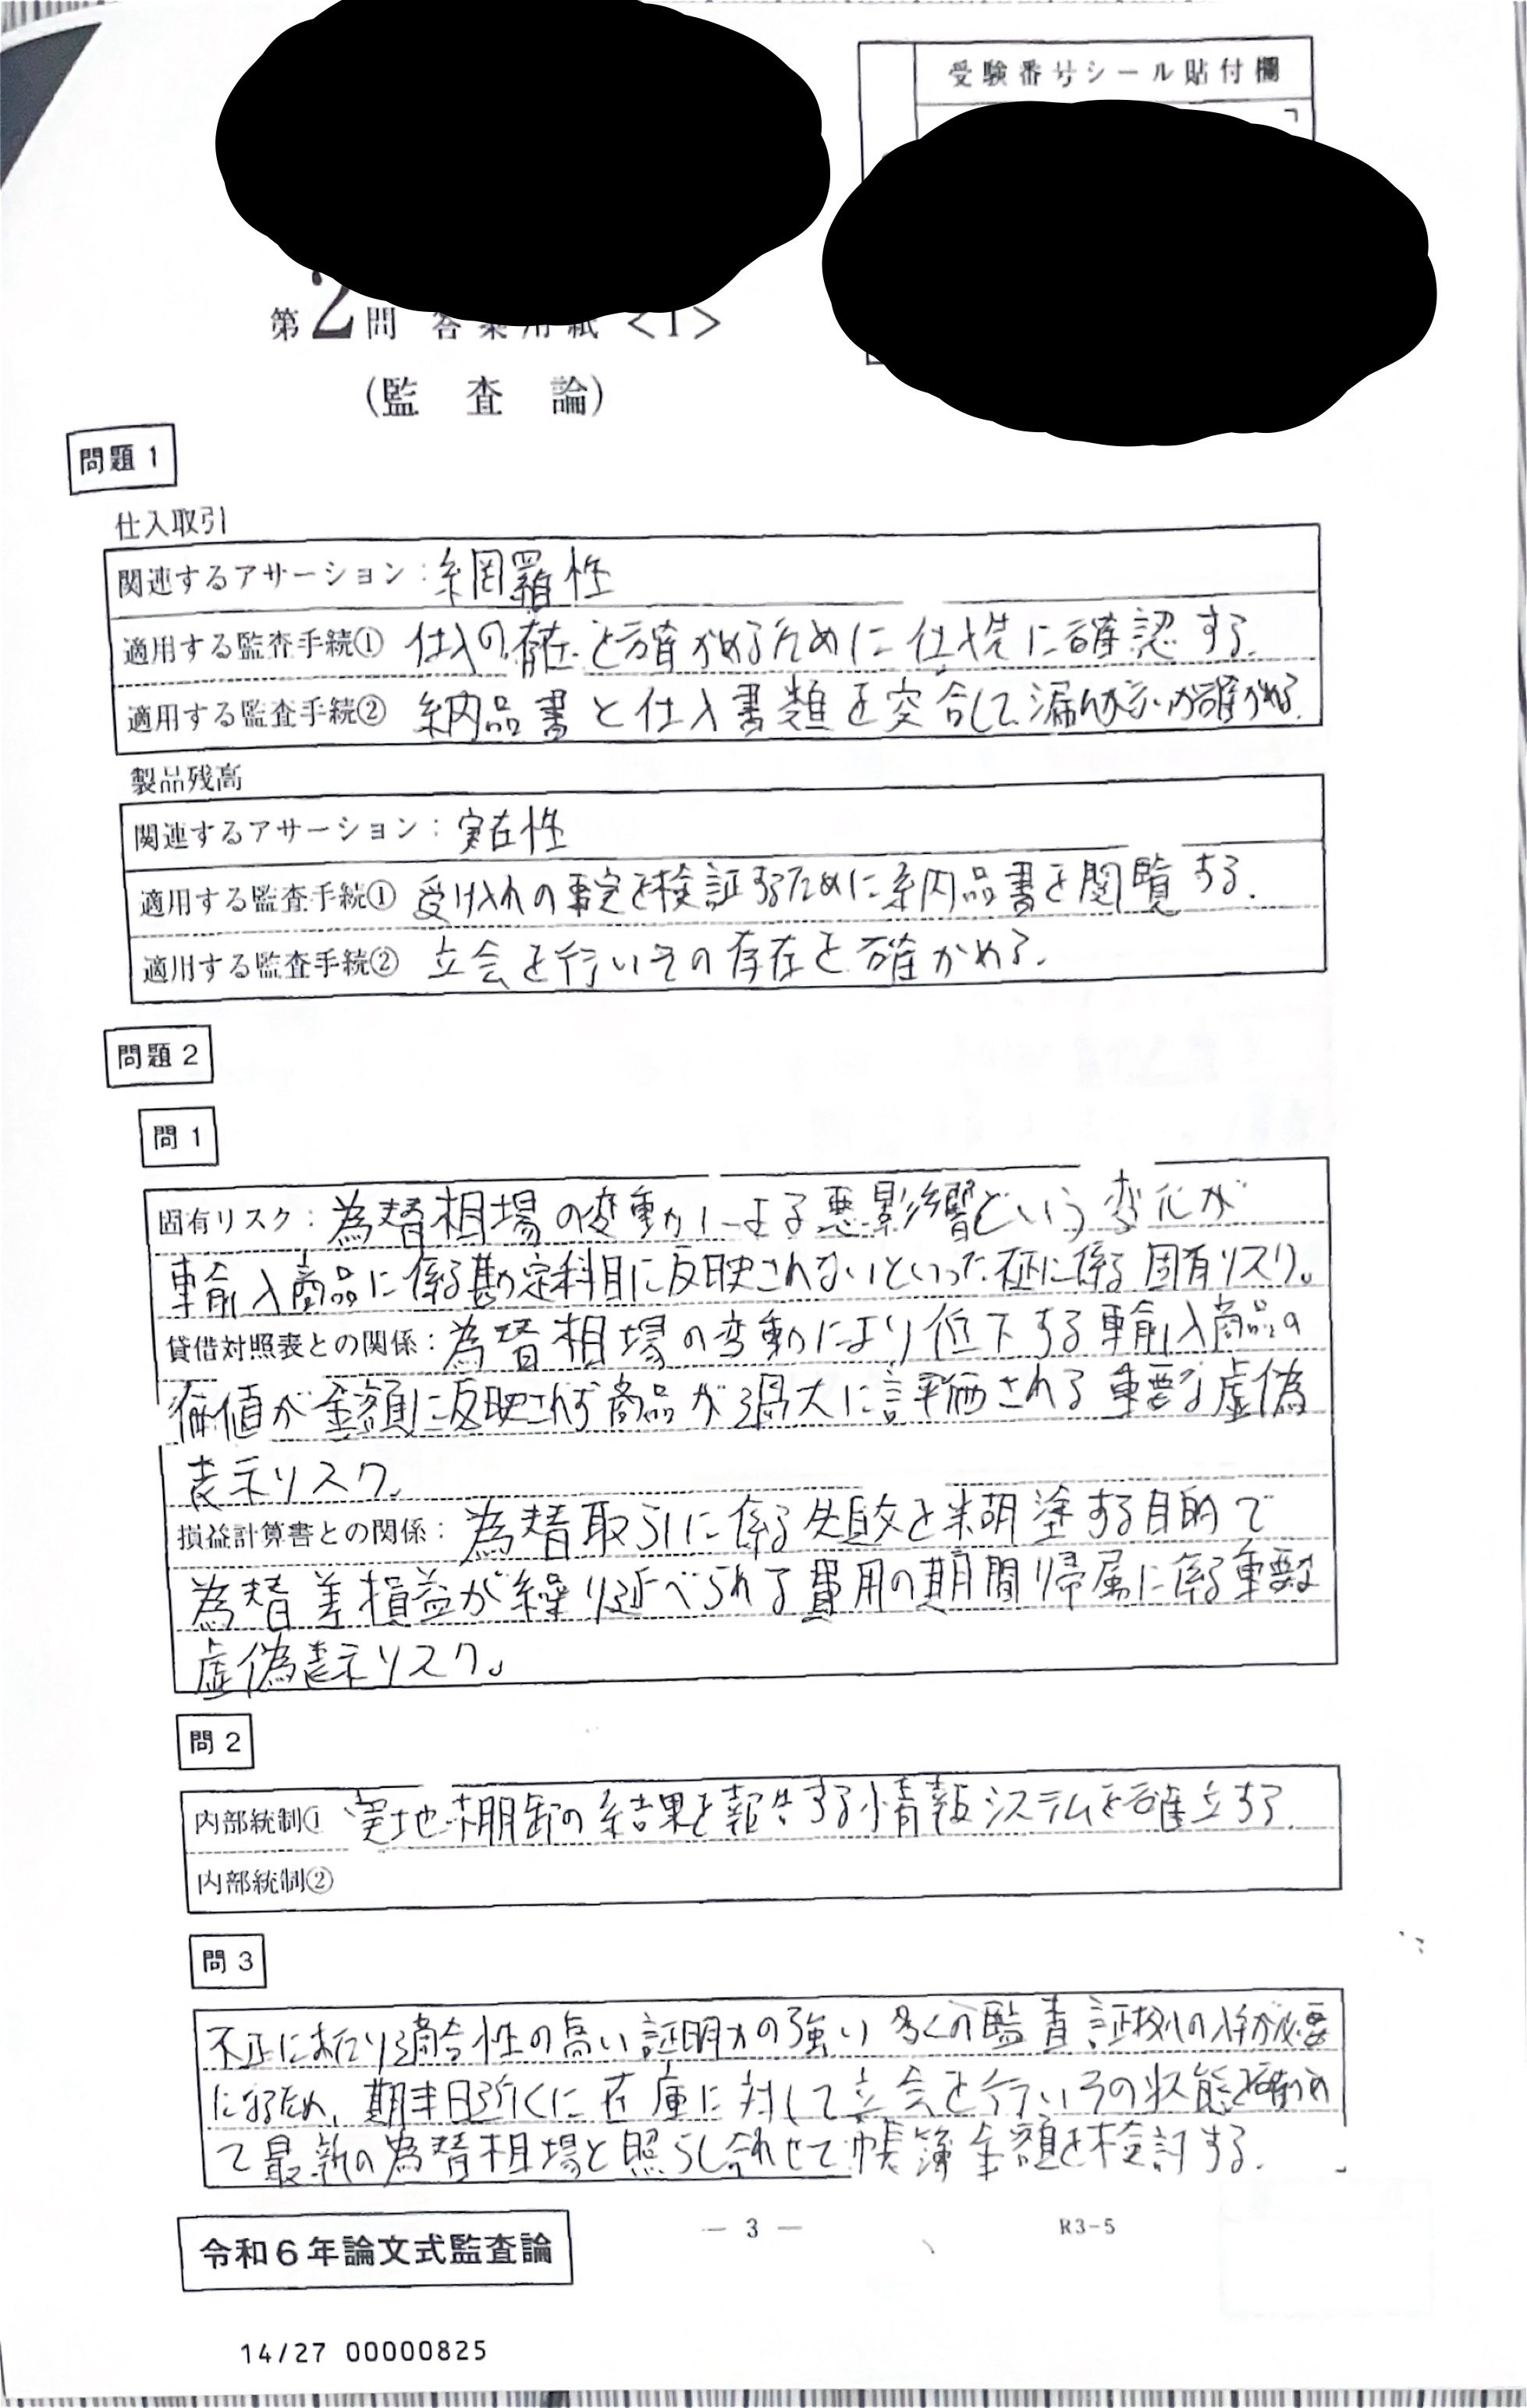 受験番号シール貼付欄
第2問 答案用紙<1>
(監査論)
問題1
仕入取引
関連するアサーション:網羅性
適用する監査手続① 仕入の存在を確かめるために仕入先に確認する。
適用する監査手続② 納品書と仕入書類を突合して漏れがないか確かめる。
製品残高
関連するアサーション:実在性
適用する監査手続① 受け入れの事実を検証するために納品書を閲覧する。
適用する監査手続② 立会を行いその存在を確かめる。
問題2
問1
固有リスク:為替相場の変動による悪影響という変化が
輸入商品に係る勘定科目に反映されないといった不正に係る固有リスク。
貸借対照表との関係:為替相場の変動により低下する輸入商品の
価値が金額に反映されず商品が過大に評価される重要な虚偽
表示リスク。
損益計算書との関係:為替取引に係る失敗を糊塗する目的で
為替差損益が繰り延べられる費用の期間帰属に係る重要な
虚偽表示リスク。
問2
内部統制① 実地棚卸の結果を報告する情報システムを確立する。
内部統制②
問3
不正にあたり適合性の高い証明力の強い多くの監査証拠の入手が必要
になるため、期末日近くに在庫に対して立会を行いその状態を確かめ
て最新の為替相場と照らし合わせて帳簿金額を検討する。
令和6年論文式監査論
― 3 ―
R3-5
14/27 00000825